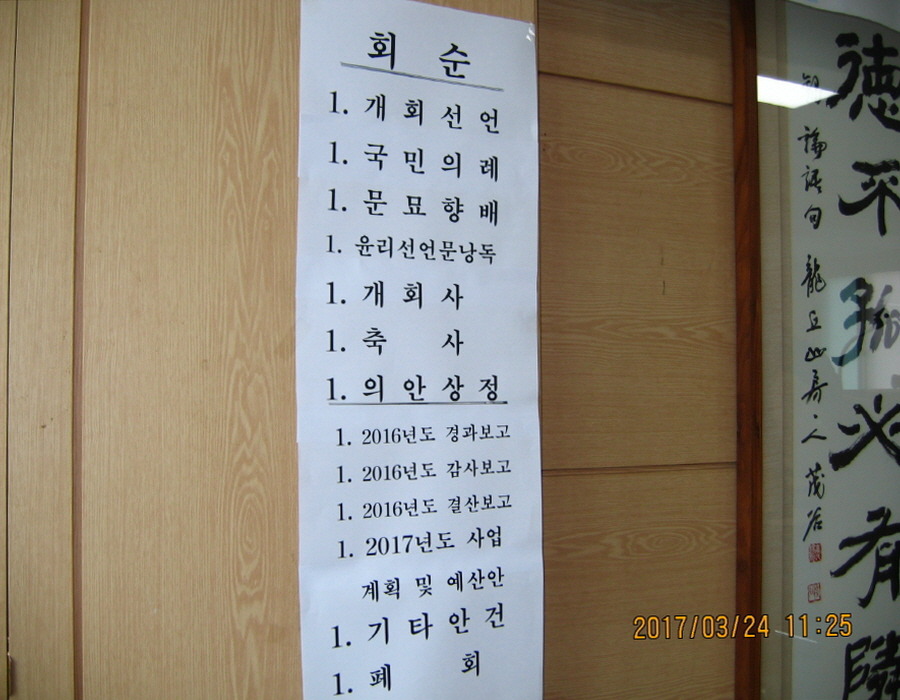 회 순
1. 개 회 선 언
1. 국 민 의 례
1. 문 묘 향 배
1. 윤리선언문낭독
1. 개 회 사
1. 축 사
1. 의 안 상 정
1. 2016년도 경과보고
1. 2016년도 감사보고
1. 2016년도 결산보고
1. 2017년도 사업
계획 및 예산안
1. 기 타 안 건
1. 폐 회
德不孤必有隣
論語句 龍丘山寿人 茂谷
2017/03/24 11:25